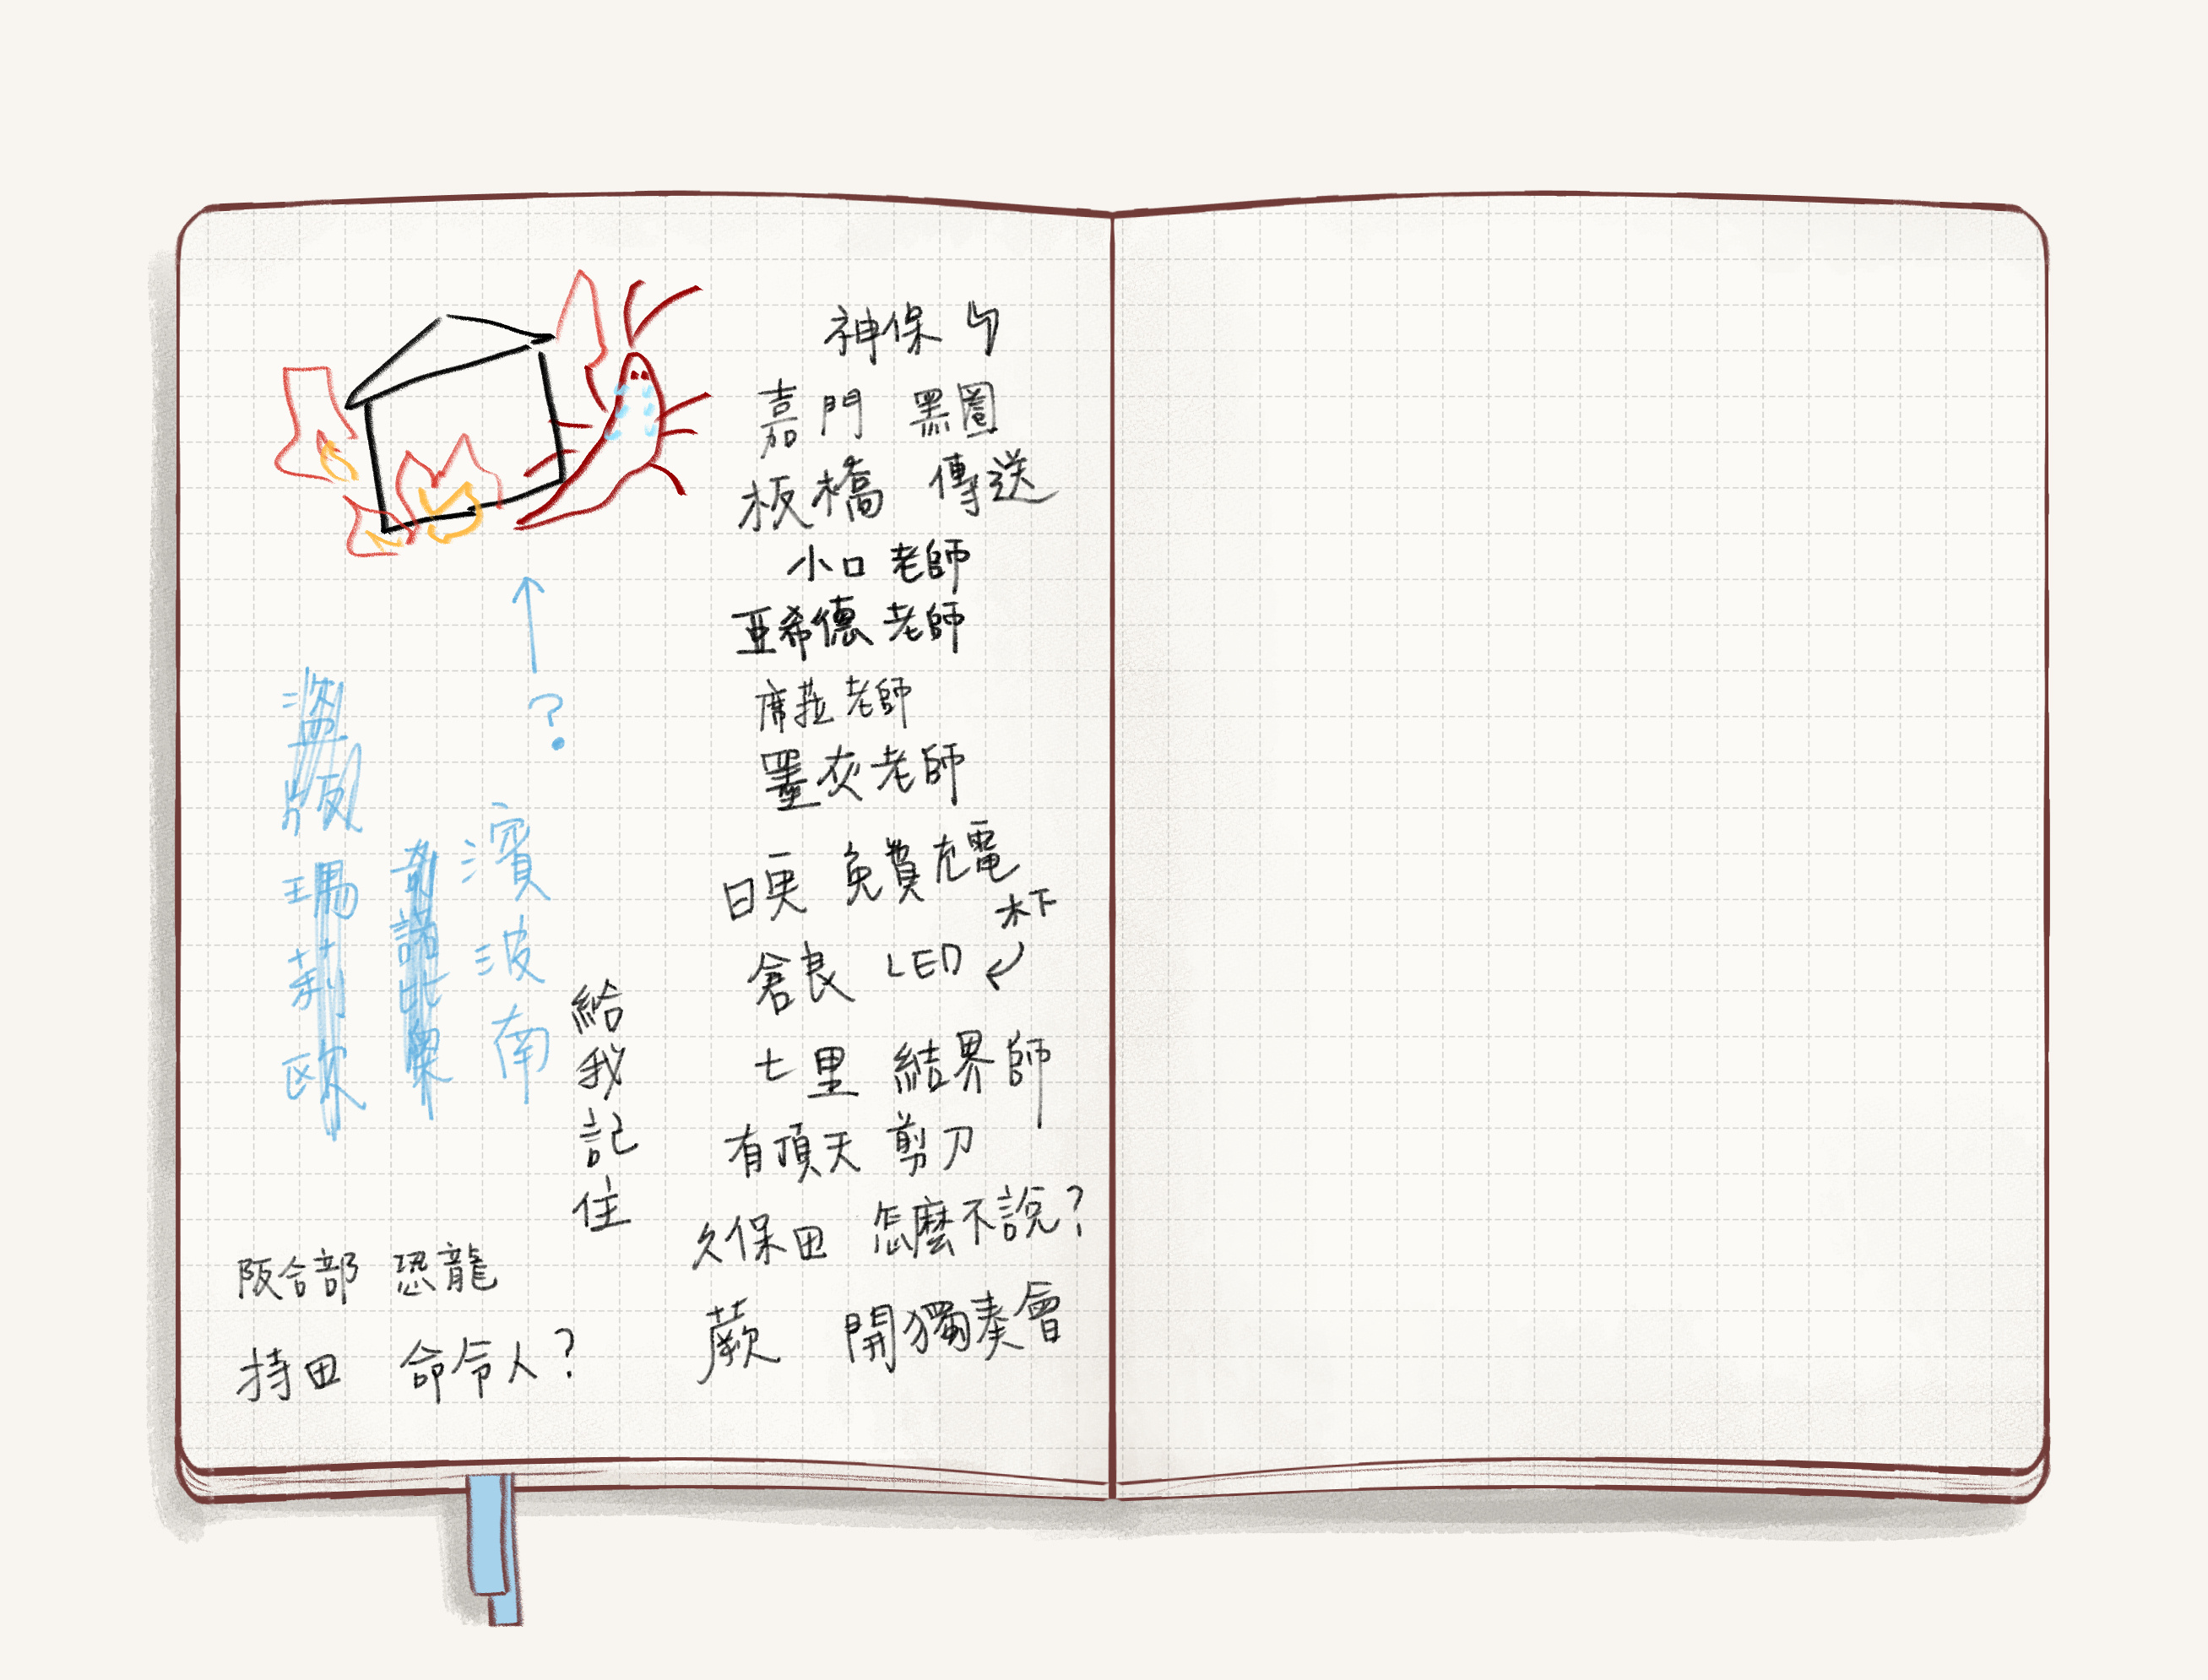 神保
嘉門 黑圈
板橋 傳送
小口老師
亞希德老師
席菈老師
墨灰老師
日更 免費充電
倉良 LED
木下
七里 結界師
有頂天 剪刀
久保田 怎麼不說?
蕨 開獨奏會
給我記住
?
濱波南
奇諾比奧
盜版瑪莉歐
阪合部 恐龍
持田 命令人?